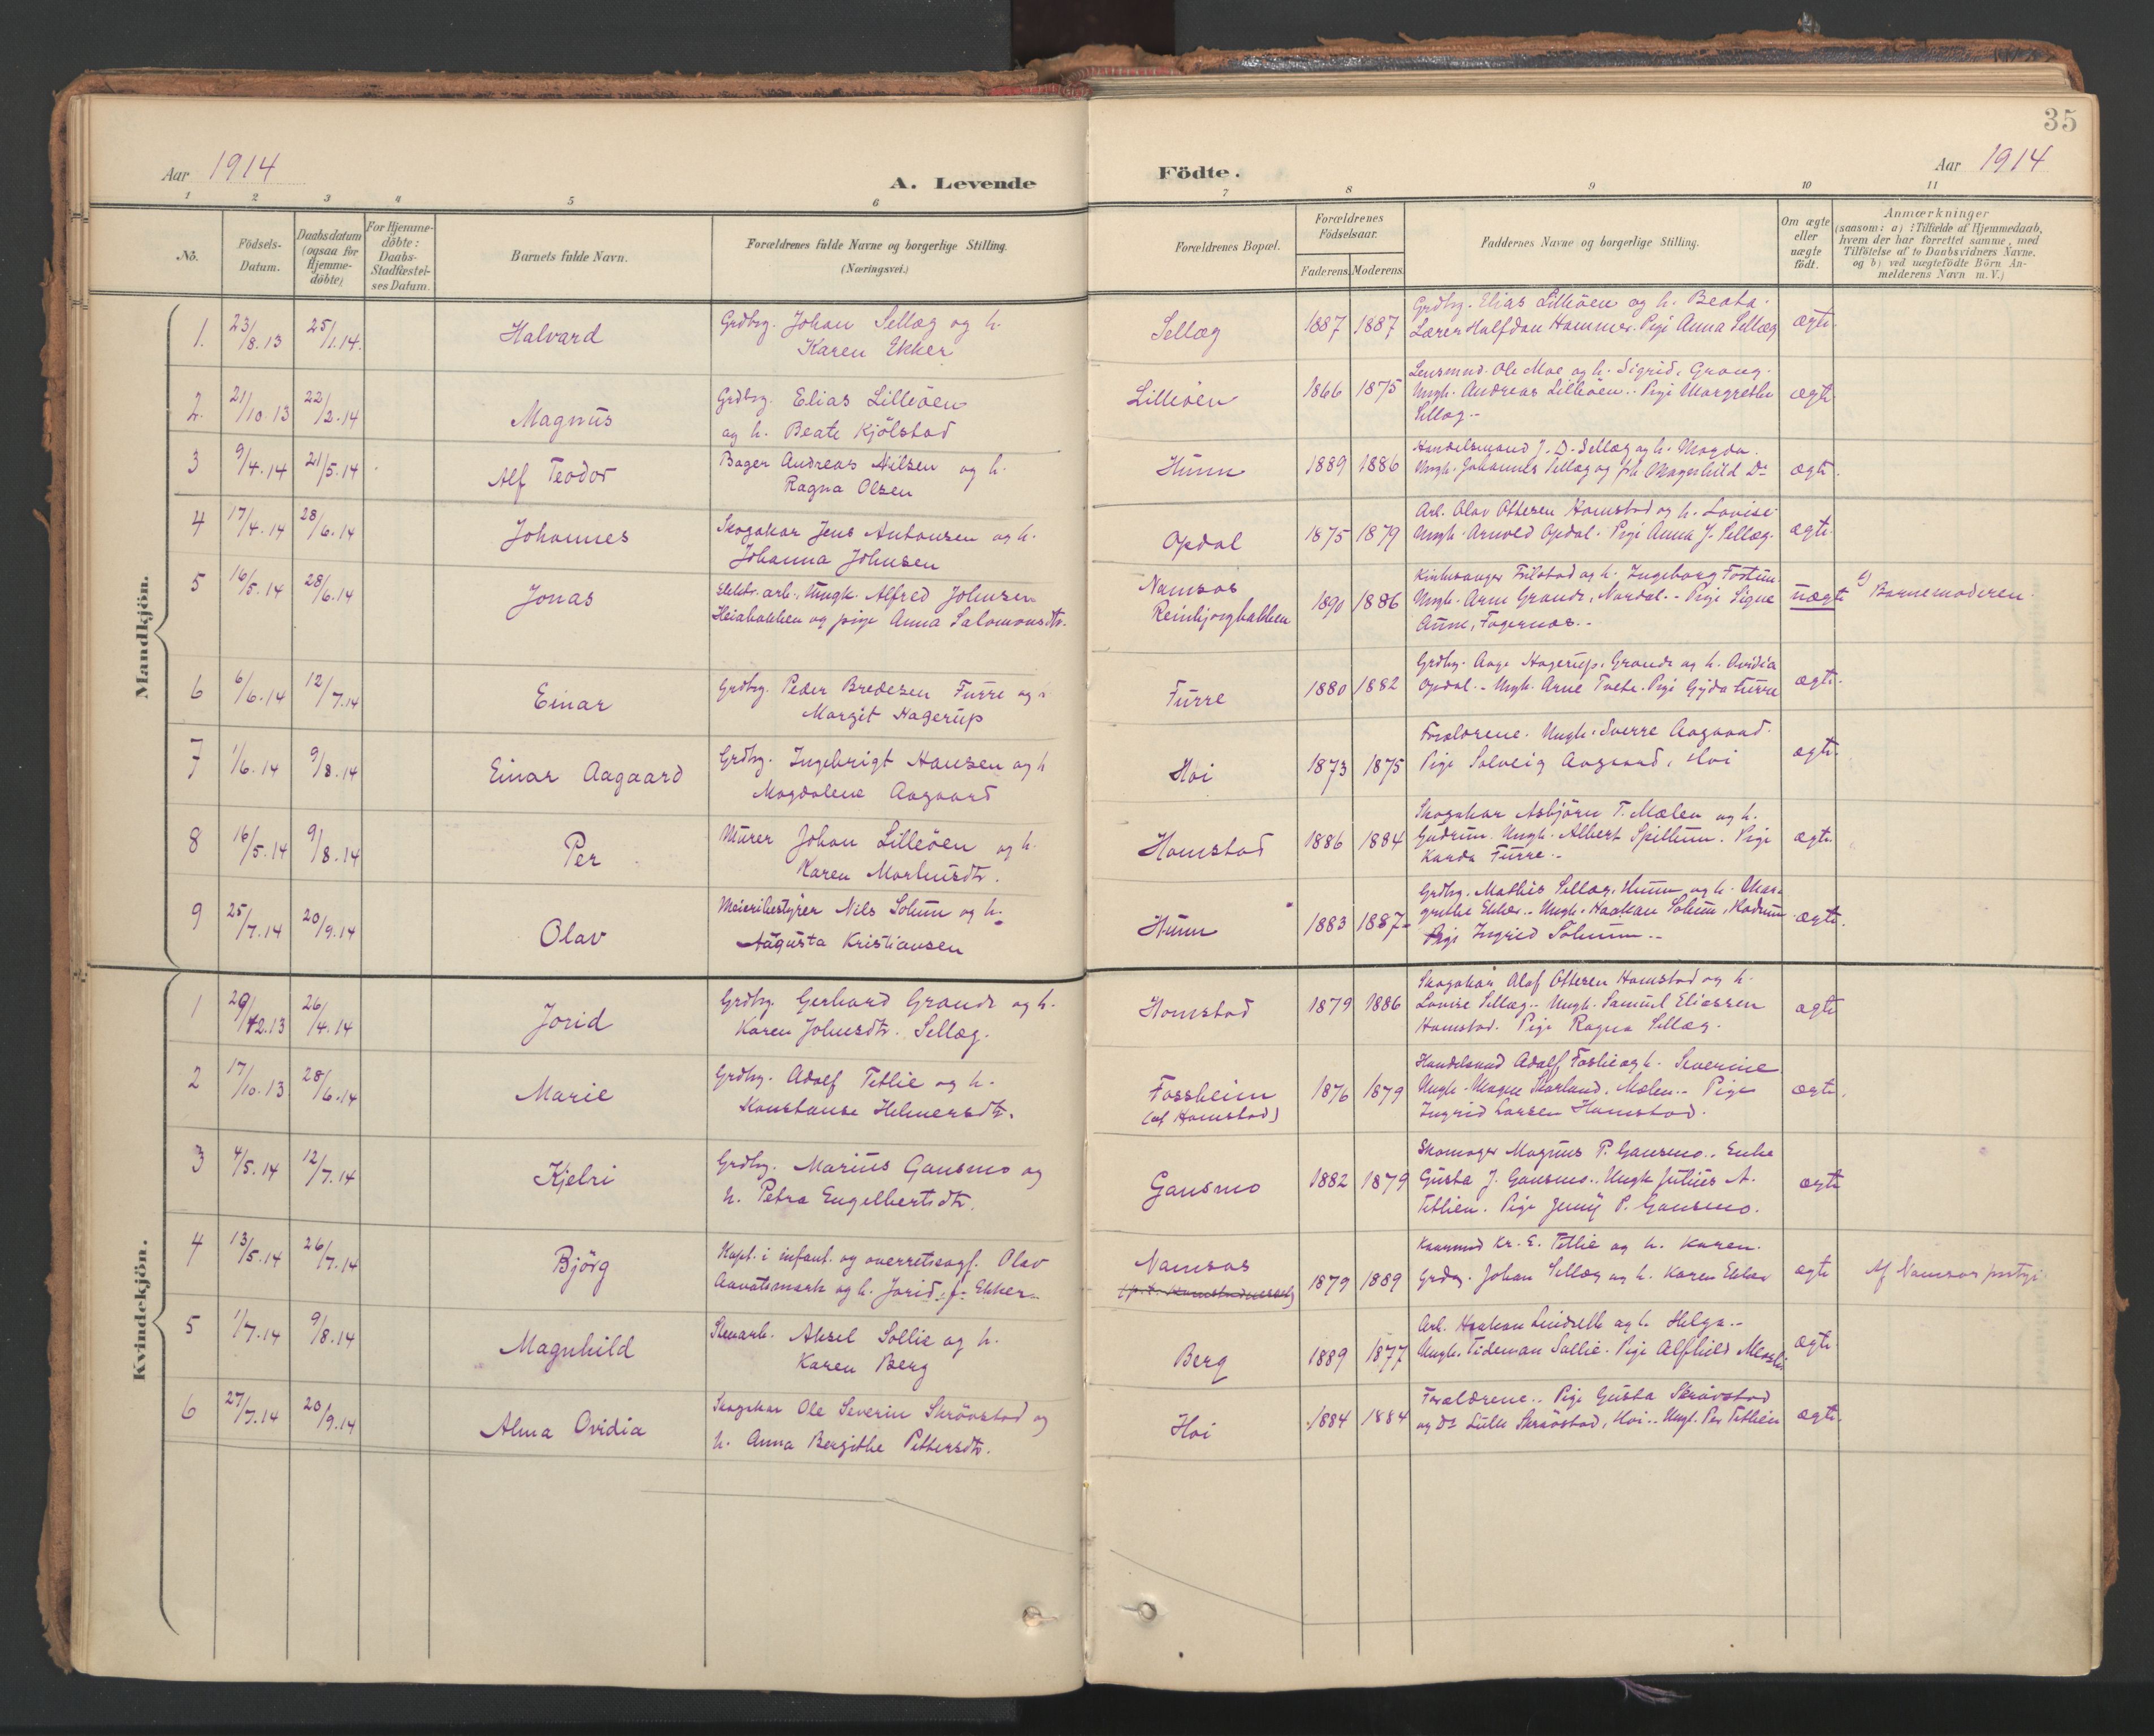 35
Aar 1914
A. Levende
Födte.
Aar 1914
1 2 3 4 5 6 7 8 9 10 11
No.
Födsels-
Datum.
Daabsdatum
(ogsaa for
Hjemme-
döbte)
For Hjemme-
döbte:
Daabs-
Stadfæstel-
ses Datum.
Barnets fulde Navn.
Forældrenes fulde Navne og borgerlige Stilling.
(Næringsvei.)
Forældrenes Bopæl.
Forældrenes
Födselsaar.
Faderens. Moderens.
Faddernes Navne og borgerlige Stilling.
Om ægte
eller
uægte
födt.
Anmærkninger
(saasom: a) i Tilfælde af Hjemmedaab,
hvem der har forrettet samme, med
Tilföielse af to Daabsvidners Navne.
og b) ved uægtefödte Börn An-
melderens Navn m. V.)
Mandkjön.
1. 23/8.13 25/1.14. Halvard
Grdbrg. Johan Sellæg og h.
Karen Ekker
Sellæg 1887 1887
Grdbrg. Elias Lilleöen og h. Beata.
Lærer Halfdan Hammer. Pige Anna Sellæg
ægte.
2. 21/10.13 22/2.14 Magnus
Grdbrg. Elias Lilleöen
og h. Beate Kjölstad
Lilleöen 1866 1875
Lensmnd. Ole Moe og h. Sigrid, Grong.
Ungk. Andreas Lilleöen.. Pige Margrethe
Sellæg..
ægte
3 9/4.14 21/5.14 Alf Teodor
Bager Andreas Nilsen og h.
Ragna Olsen
Hunn 1889 1886
Handelsmand J. D. Sellæg og h. Magda.
Ungk. Johannes Sellæg og Magnhild Do
ægte.
4 17/4.14 28/6.14 Johannes
Skogakar Jens Antonsen og h.
Johanna Johnsen
Opdal 1875 1879
Arb. Olav Ottesen Homstad og h. Lovise.
Ungk. Arnold Opdal. Pige Anna J. Sellæg.
ægte.
5 16/5.14 28/6.14 Jonas
Elektr. arb., Ungk. Alfred Johnsen
Heiabakken og pige Anna Salomonsdtr.
Namsos
Reinbjorgbakken 1890 1886
Kirkesanger Frilstad og h. Ingeborg
Ungk. Arne Grande, Nordal.. Pige Signe
Aune, Fagernes..
uægte
Barnemoderen.
6 6/6.14 12/7.14 Einar
Grdbrg. Peder Bredesen Furre og h
Margit Hagerup
Furre 1880 1882
Grdbrg. Aage Hagerup, Grande og h. Ovidia
Opdal.. Ungk. Arne Tvete. Pige Gyda Furre
ægte.
7 1/6.14 9/8.14 Einar Aagaard
Grdbrg. Ingebrigt Hansen og h
Magdalene Aagaard
Hoi 1873 1875
Forældrene. Ungk. Sverre Aagaard.
Pige Solveig Aagaard, Hoi
ægte.
8 16/5.14 9/8.14 Per
Murer Johan Lilleöen og h.
Karen Markusdtr.
Homstad 1886 1884
Skogakar Asbjörn T. Mælen og h.
Gudrun. Ungk. Albert Spillum. Pige
Karda Furre..
ægte.
9 25/7.14 20/9.14 Olav
Meieribestyrer Nils Solum og h.
Augusta Kristiansen
Hunn 1883 1887
Grdbrg. Mathis Sellæg, Hunn og h. Mar-
grethe Ekker.. Ungk. Haakon Solum,
Pige Ingrid Solum..
ægte.
Kvindekjön.
1 29/12.13 26/4.14 Jorid
Grdbrg. Gerhard Grande og h.
Karen Johnsdtr. Sellæg.
Homstad 1879 1886
Skogakar Olaf Ottesen Homstad og h.
Lovise Sellæg.. Ungk. Samuel Eliassen
Homstad. Pige Ragna Sellæg.
ægte
2 17/10.13 28/6.14 Marie
Grdbrg. Adolf Tetlie og h.
Konstanse Helmersdtr.
Fossheim
(af Homstad) 1876 1879
Handelsmd Adolf Foslie og h. Severine
Ungk. Magne Skarland, Mælen.. Pige
Ingrid Larsen Homstad.
ægte.
3 4/5.14 12/7.14 Kjelri
Grdbrg. Marius Gansmo og
h. Petra Engelbertsdtr.
Gansmo 1882 1879
Skomager Magnus P. Gansmo.. Enke
Gusta J. Gansmo.. Ungk Julius A.
Tetlien. Pige Jenny P. Gansmo.
ægte
4 13/5.14 26/7.14 Björg
Kapt. i infant. og overretssagf. Olav
Aavatsmark og h. Jorid f. Ekker..
Namsos 1879 1889
Kr. E. Tetlie og h. Karen.
Grdbrg. Johan Sellæg og h. Karen Ekker
ægte
Af Namsos prstgj.
5 1/7.14 9/8.14 Magnhild
Stenarb. Aksel Sollie og h.
Karen Berg
Berg 1889 1877
Arb. Haakon Lindseth og h. Helga..
Ungk. Tideman Sollie. Pige Alfhild
ægte.
6 27/7.14 20/9.14 Alma Ovidia
Skogakar Ole Severin Skrövstad og
h. Anna Bergithe Pettersdtr.
Hoi 1884 1884
Forældrene.. Pige Gusta Skrövstad
og Do Lulla Skrövstad, Hoi.. Ungk. Per Tetlien
ægte.